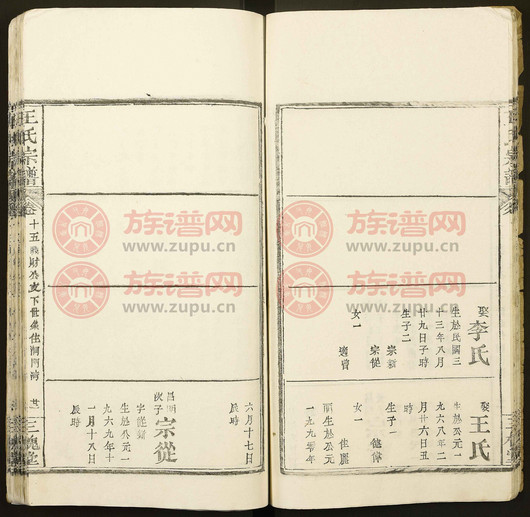 娶李氏
生於民國三
十三年八月
廿九日子時
生子二
宗新
宗從
女一
適曾
娶王氏
生於公元一
九六八年二
月廿六日丑
時
生子一
女一
佳麗
生於公元
一九九
六月十七日
辰時
昌明
次子
宗從
字
生於公元一
九六九年十
一月十八日
辰時
王氏宗譜
卷
十五
財公支下世系
廿
三槐堂
族谱网
www.zupu.cn
族谱网
www.zupu.cn
族谱网
www.zupu.cn
族谱网
www.zupu.cn